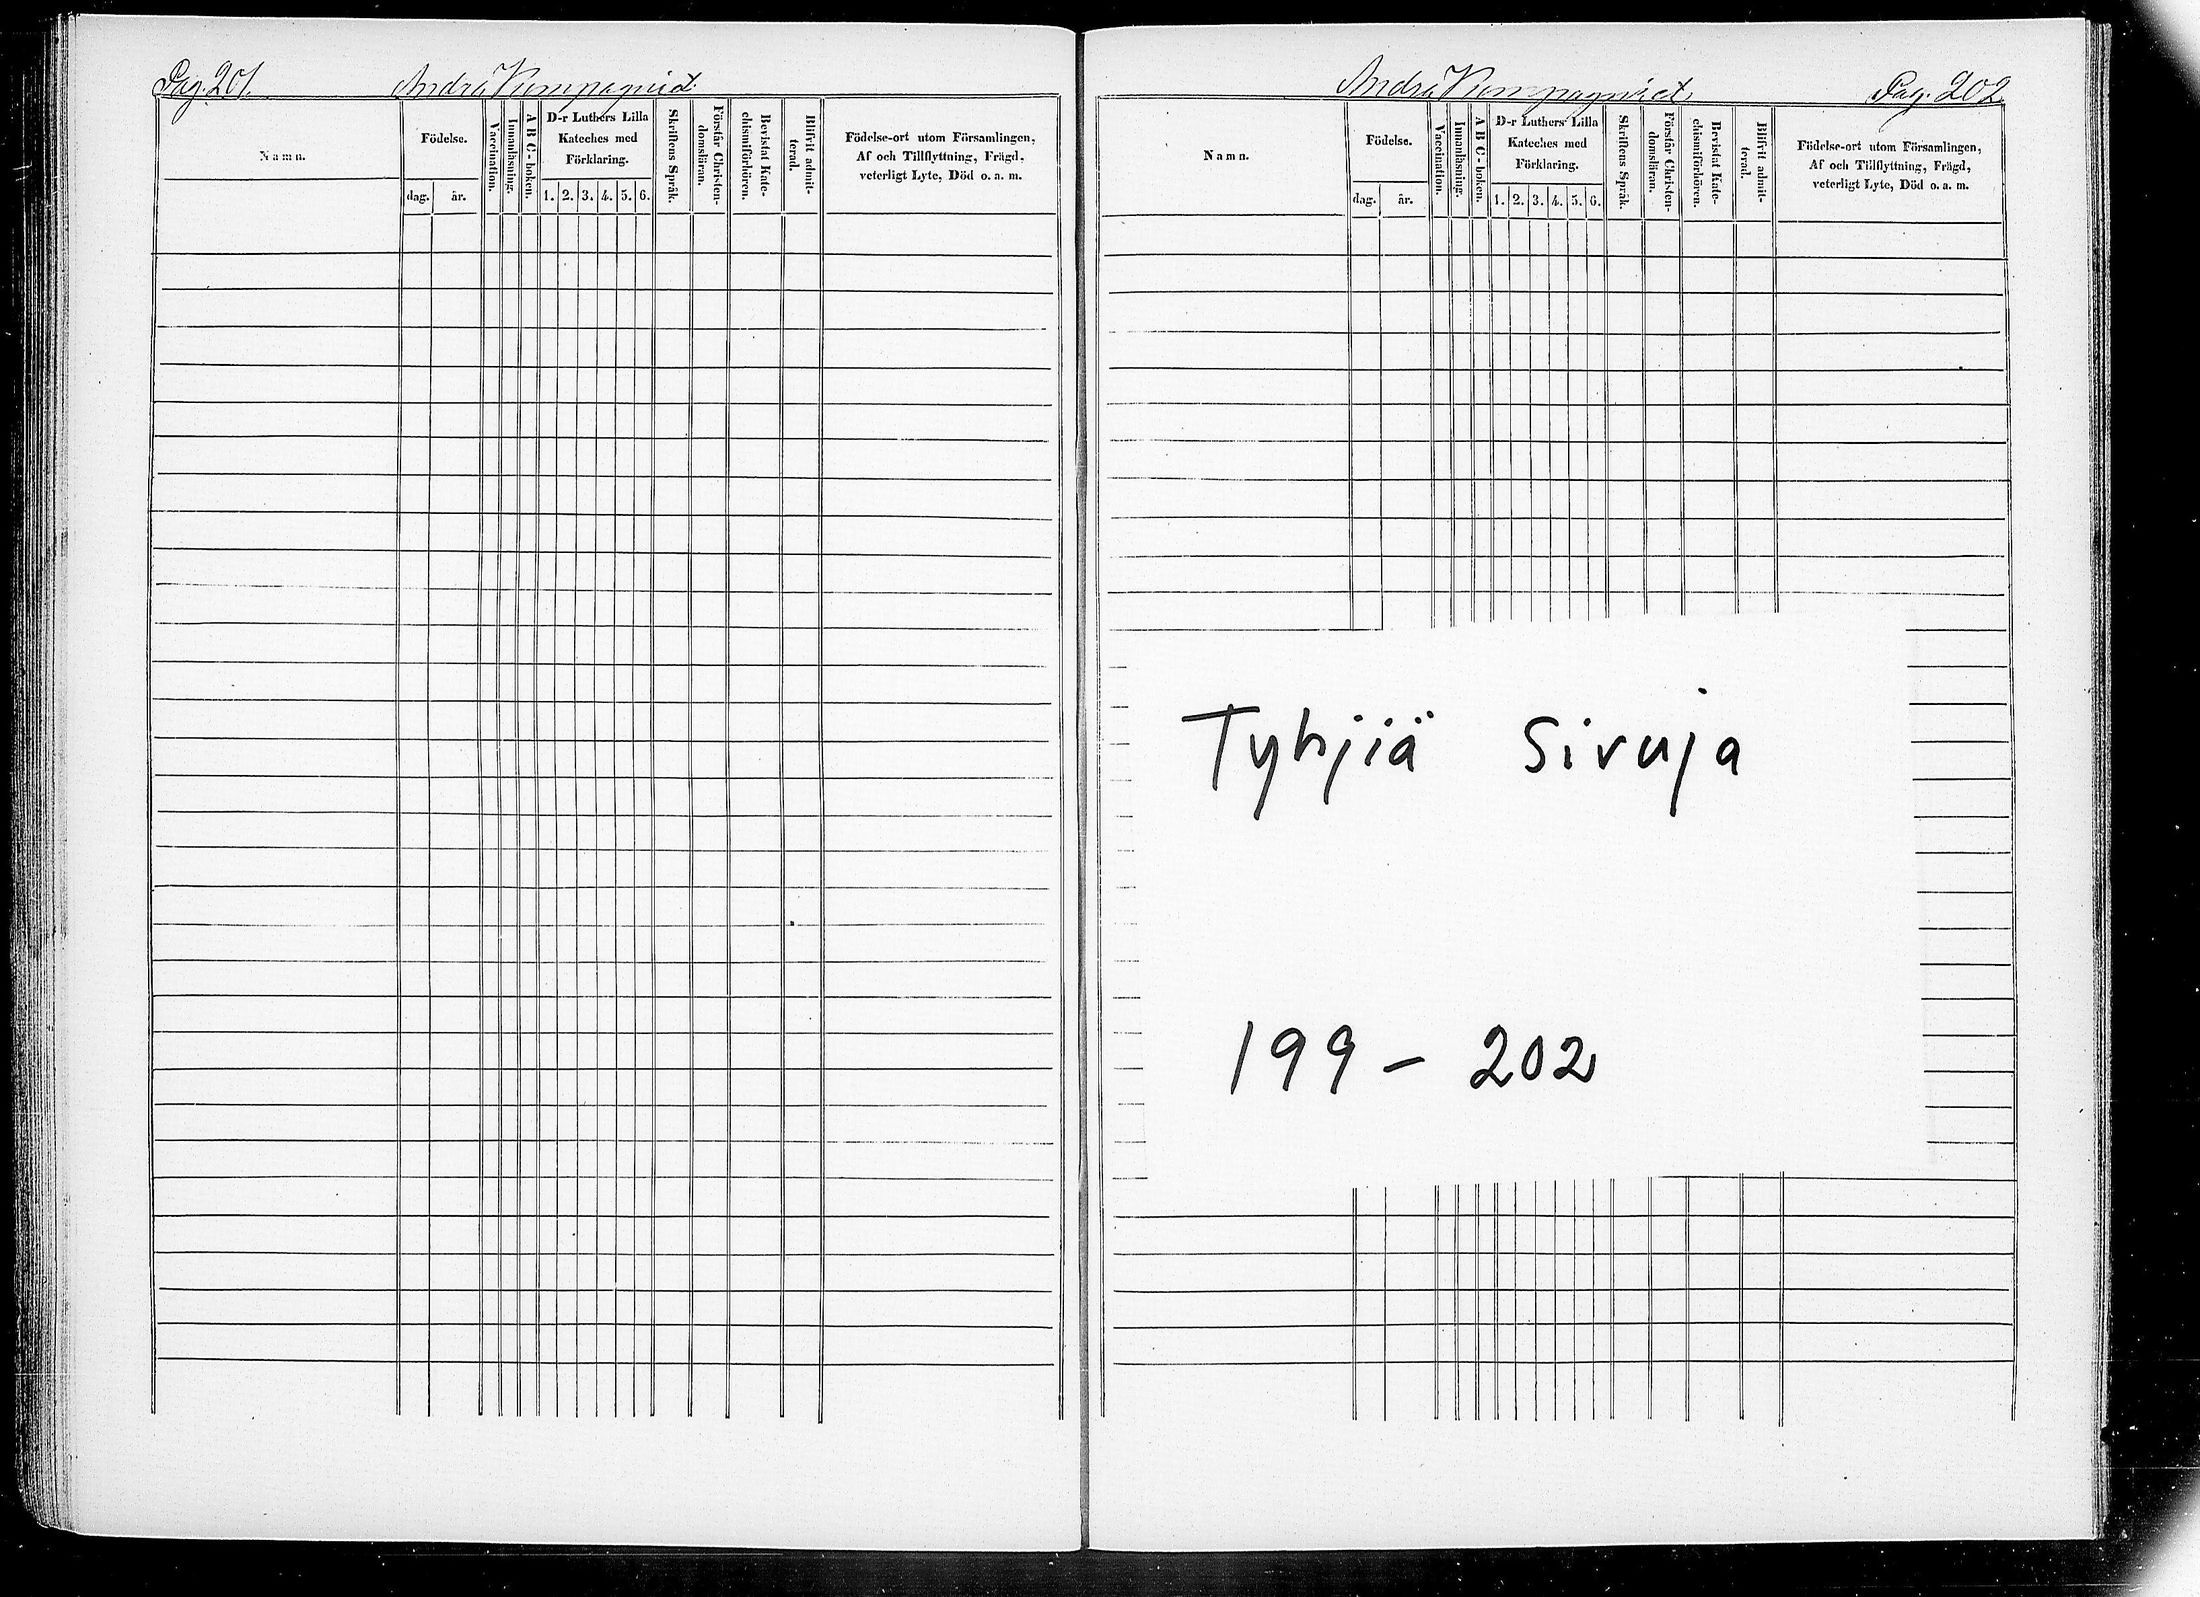 Pag. 201.
Andra Kompagniet
Namn.
Födelse.
dag.
år.
Vaccination.
Innanläsning.
A B C-boken.
D-r Luthers Lilla
Kateches med
Förklaring.
1. 2. 3. 4. 5. 6.
Skriftens Språk.
Förstår Christen-
domsläran.
Bevistat Kate-
chismiförhören.
Blifvit admit-
terad.
Födelse-ort utom Församlingen,
Af och Tillflyttning, Frägd,
veterligt Lyte, Död o. a. m.
Andra Kompagniet
Pag. 202.
Namn.
Födelse.
dag.
år.
Vaccination.
Innanläsning.
A B C-boken.
D-r Luthers Lilla
Kateches med
Förklaring.
1. 2. 3. 4. 5. 6.
Skriftens Språk.
Förstår Christen-
domsläran.
Bevistat Kate-
chismiförhören.
Blifvit admit-
terad.
Födelse-ort utom Församlingen,
Af och Tillflyttning, Frägd,
veterligt Lyte, Död o. a. m.
Tyhjiä sivuja
199 - 202